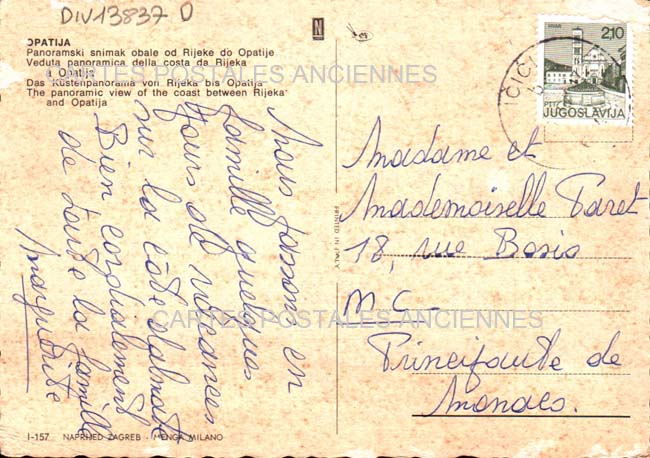 DIV13837 D
OPATIJA
Panoramski snimak obale od Rijeke do Opatije
Veduta panoramica della costa da Rijeka
a Opatija
Das Küstenpanorama von Rijeka bis Opatija
The panoramic view of the coast between Rijeka
and Opatija
N
CARTES POSTALES ANCIENNES
2,10
PTT JUGOSLAVIJA
IČIĆI
Nous passons en
famille quelques
jours de vacances
sur la côte dalmate
Bien cordialement
de toute la famille
Marguerite
PRINTED IN ITALY
Madame et
Mademoiselle Paret
18, rue Bosio
M.C.
Principauté de
Monaco.
CARTES POSTALES ANCIENNES
I-157 NAPRIJED ZAGREB - MENGA MILANO